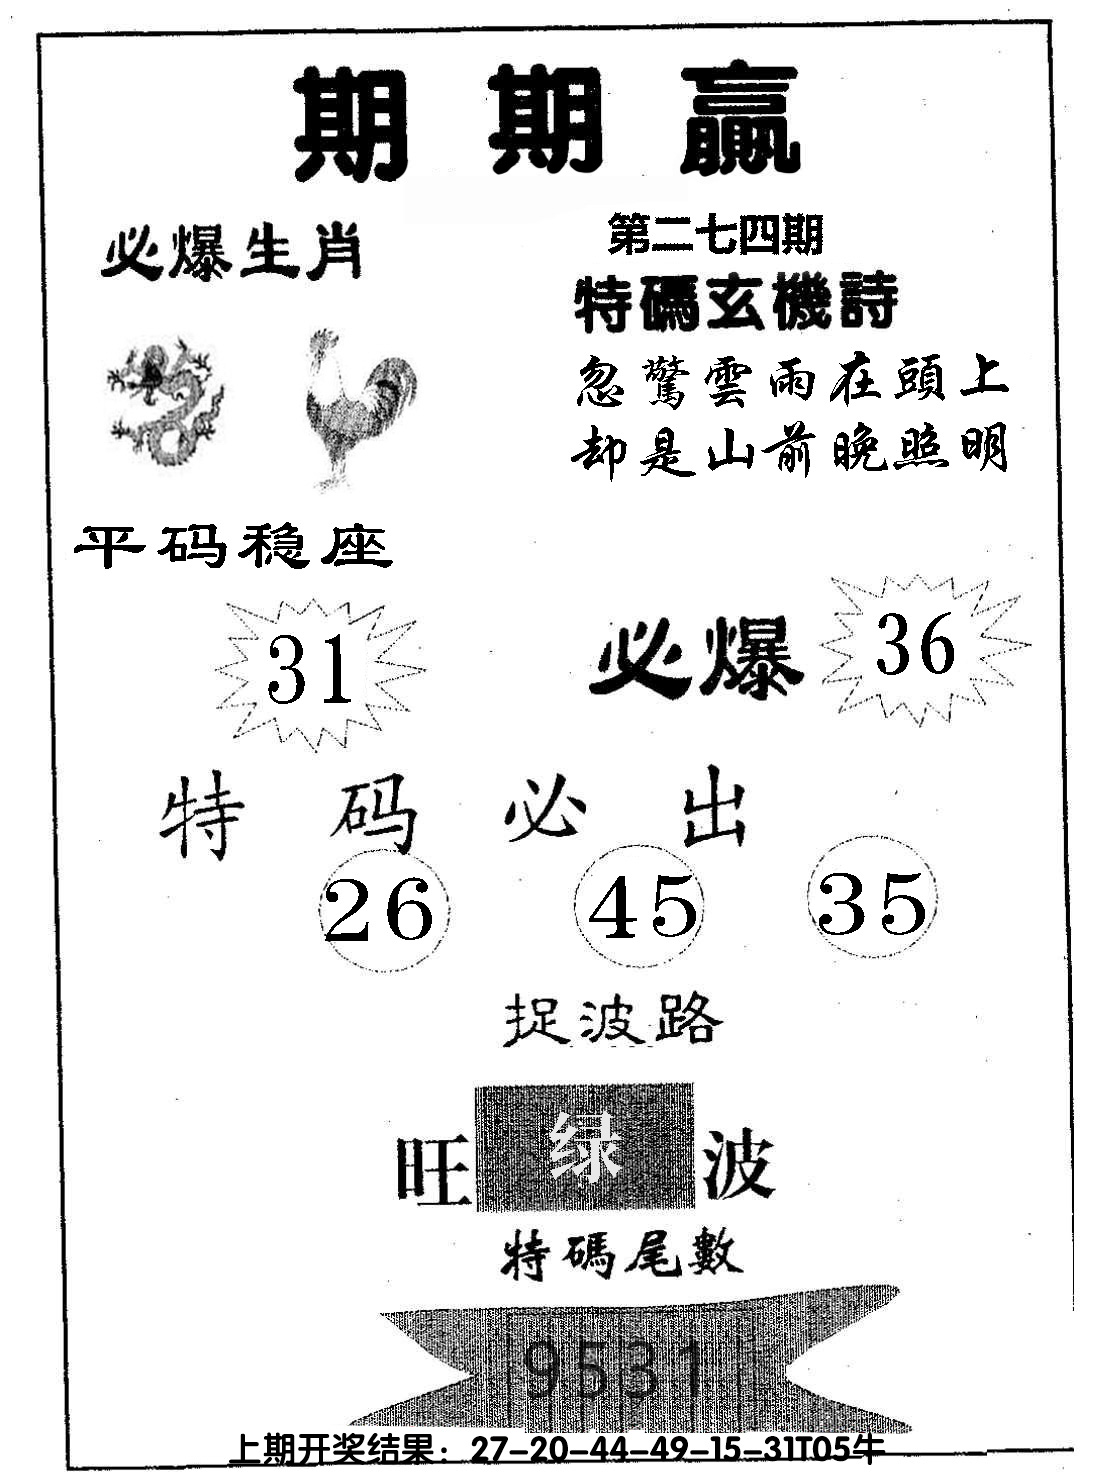 期期贏
必爆生肖
第二七四期
特碼玄機詩
忽驚雲雨在頭上
却是山前晚照明
平码稳座
31
必爆 36
特码必出
26 45 35
捉波路
旺 绿 波
特碼尾數
9531
上期开奖结果：27-20-44-49-15-31T05牛